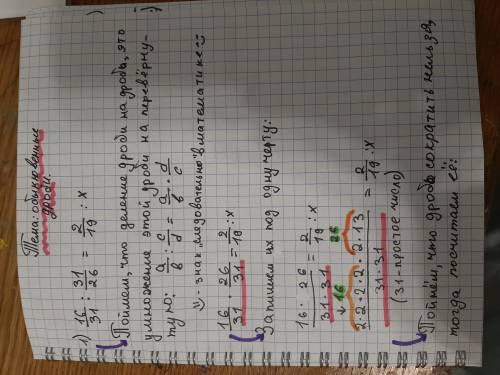 Тема: обыкновенные
дроби.
1) 16/31 : 31/26 = 2/19 : x
Поймём, что деление дроби на дробь, это
умножение этой дроби на перевёрну-
тую: a/b : c/d = a/b · d/c
⇒ - знак „следовательно" в математике
16/31 · 26/31 = 2/19 : x
Запишем их под одну черту:
16 · 26/31·31 = 2/19 : x
16 26
2·2·2·2·2·13/31·31 = 2/19 : x
(31-простое число)
Поймём, что дробь сократить нельзя,
тогда посчитаем её: